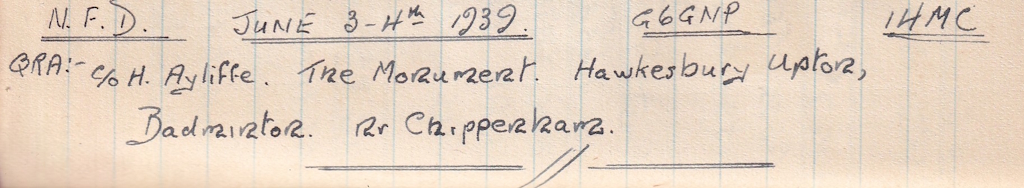 N.F.D. JUNE 3-4th 1939. G6GNP 14MC
QRA:- c/o H. Ayliffe. The Monument. Hawkesbury Upton,
Badminton. Nr Chippenham.